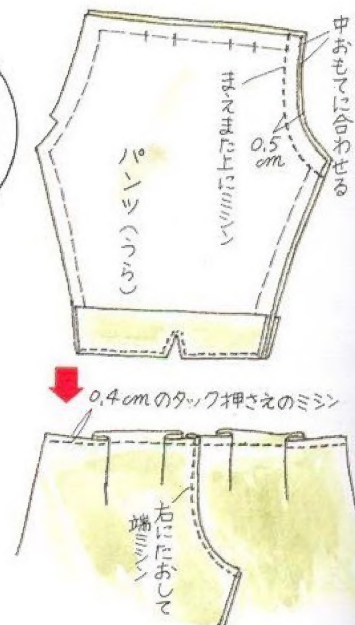 中おもてに合わせる
0.5
cm
まえまた上にミシン
パンツ(うら)
0.4cmのタック押さえのミシン
右にたおして
端ミシン